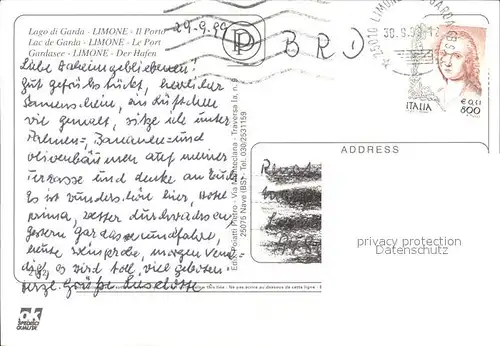 Lago di Garda - LIMONE - Il Porto
Lac de Garda - LIMONE - Le Port
Gardasee - LIMONE - Der Hafen
29.9.99
P
BRD
25010 LIMONE
GARDA
30.9.99-12
ITALIA
€ 0,41
800
Liebe Daheimgebliebenen!
Gut gefrühstückt, herrlicher
Sonnenschein, ein Lüftchen
viel gemalt, sitze ich unter
Palmen=, Bananen= und
Olivenbäumen auf meiner
Terrasse und denke an Euch
Es ist wunderschön hier, Hotel
prima, Wetter durchwachsen
gestern Gardaseerundfahrt,
heute Weinprobe, morgen Vene
dig, es wird toll, viel geboten.
Herzl. Grüße Liselotte
Ediz. Poiatti Pietro - Via Mantociana - Traversa Ia, n. 9
25075 Nave (BS) - Tel. 030/2531159
ADDRESS
privacy protection
Datenschutz
Ne pas écrire au dessous de cette ligne
OK
SPEDISCI
QUALISE